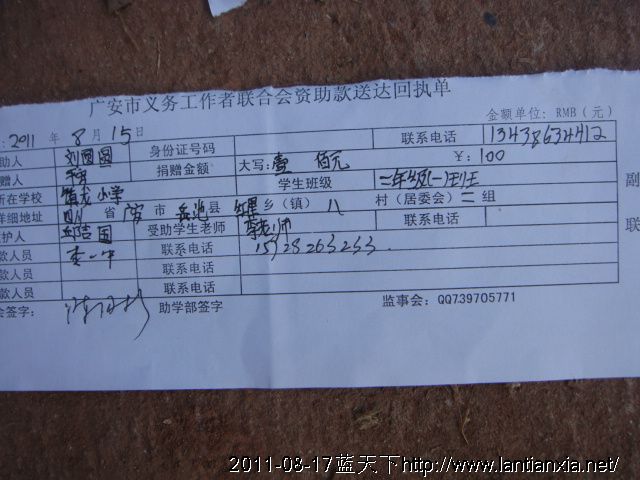 广安市义务工作者联合会资助款送达回执单
金额单位: RMB(元)
: 2011 年 8 月 15 日
助人 刘圆圆 身份证号码 联系电话 13438634412
赠人 捐赠金额 大写: 壹 佰元 ¥: 100
所在学校 龙小学 学生班级 二年级(一)班
详细地址 四川 省 广安 市 岳池 县 乡(镇) 八 村(居委会) 二 组
护人 邱吉国 受助学生老师 李老师 联系电话
款人员 李一中 联系电话 15928263233
款人员 联系电话
款人员 联系电话
会签字: 助学部签字 监事会: QQ739705771
副
联
2011-08-17蓝天下http://www.lantianxia.net/